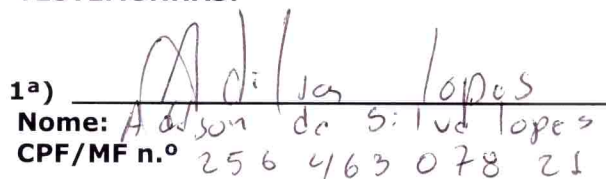 1ª) Adilson lopes
Nome: Adilson da Silva lopes
CPF/MF n.º 256 463 078 21